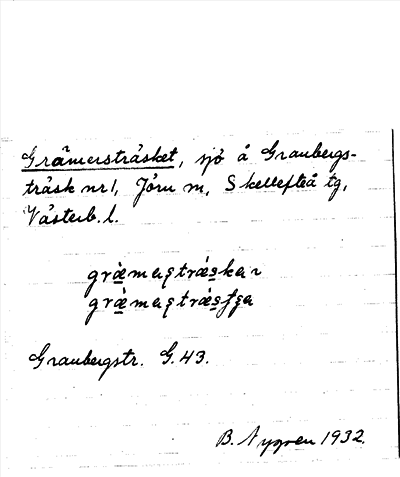 Gråmersträsket, sjö å Granbergs-
träsk nr 1, Jörn sn, Skellefteå tg,
Västerb. l.
græ̀maʂtrǽskaɿ
græ̀maʂtrǽsʃʂa
Granbergstr. G. 43.
B. Nygren 1932.